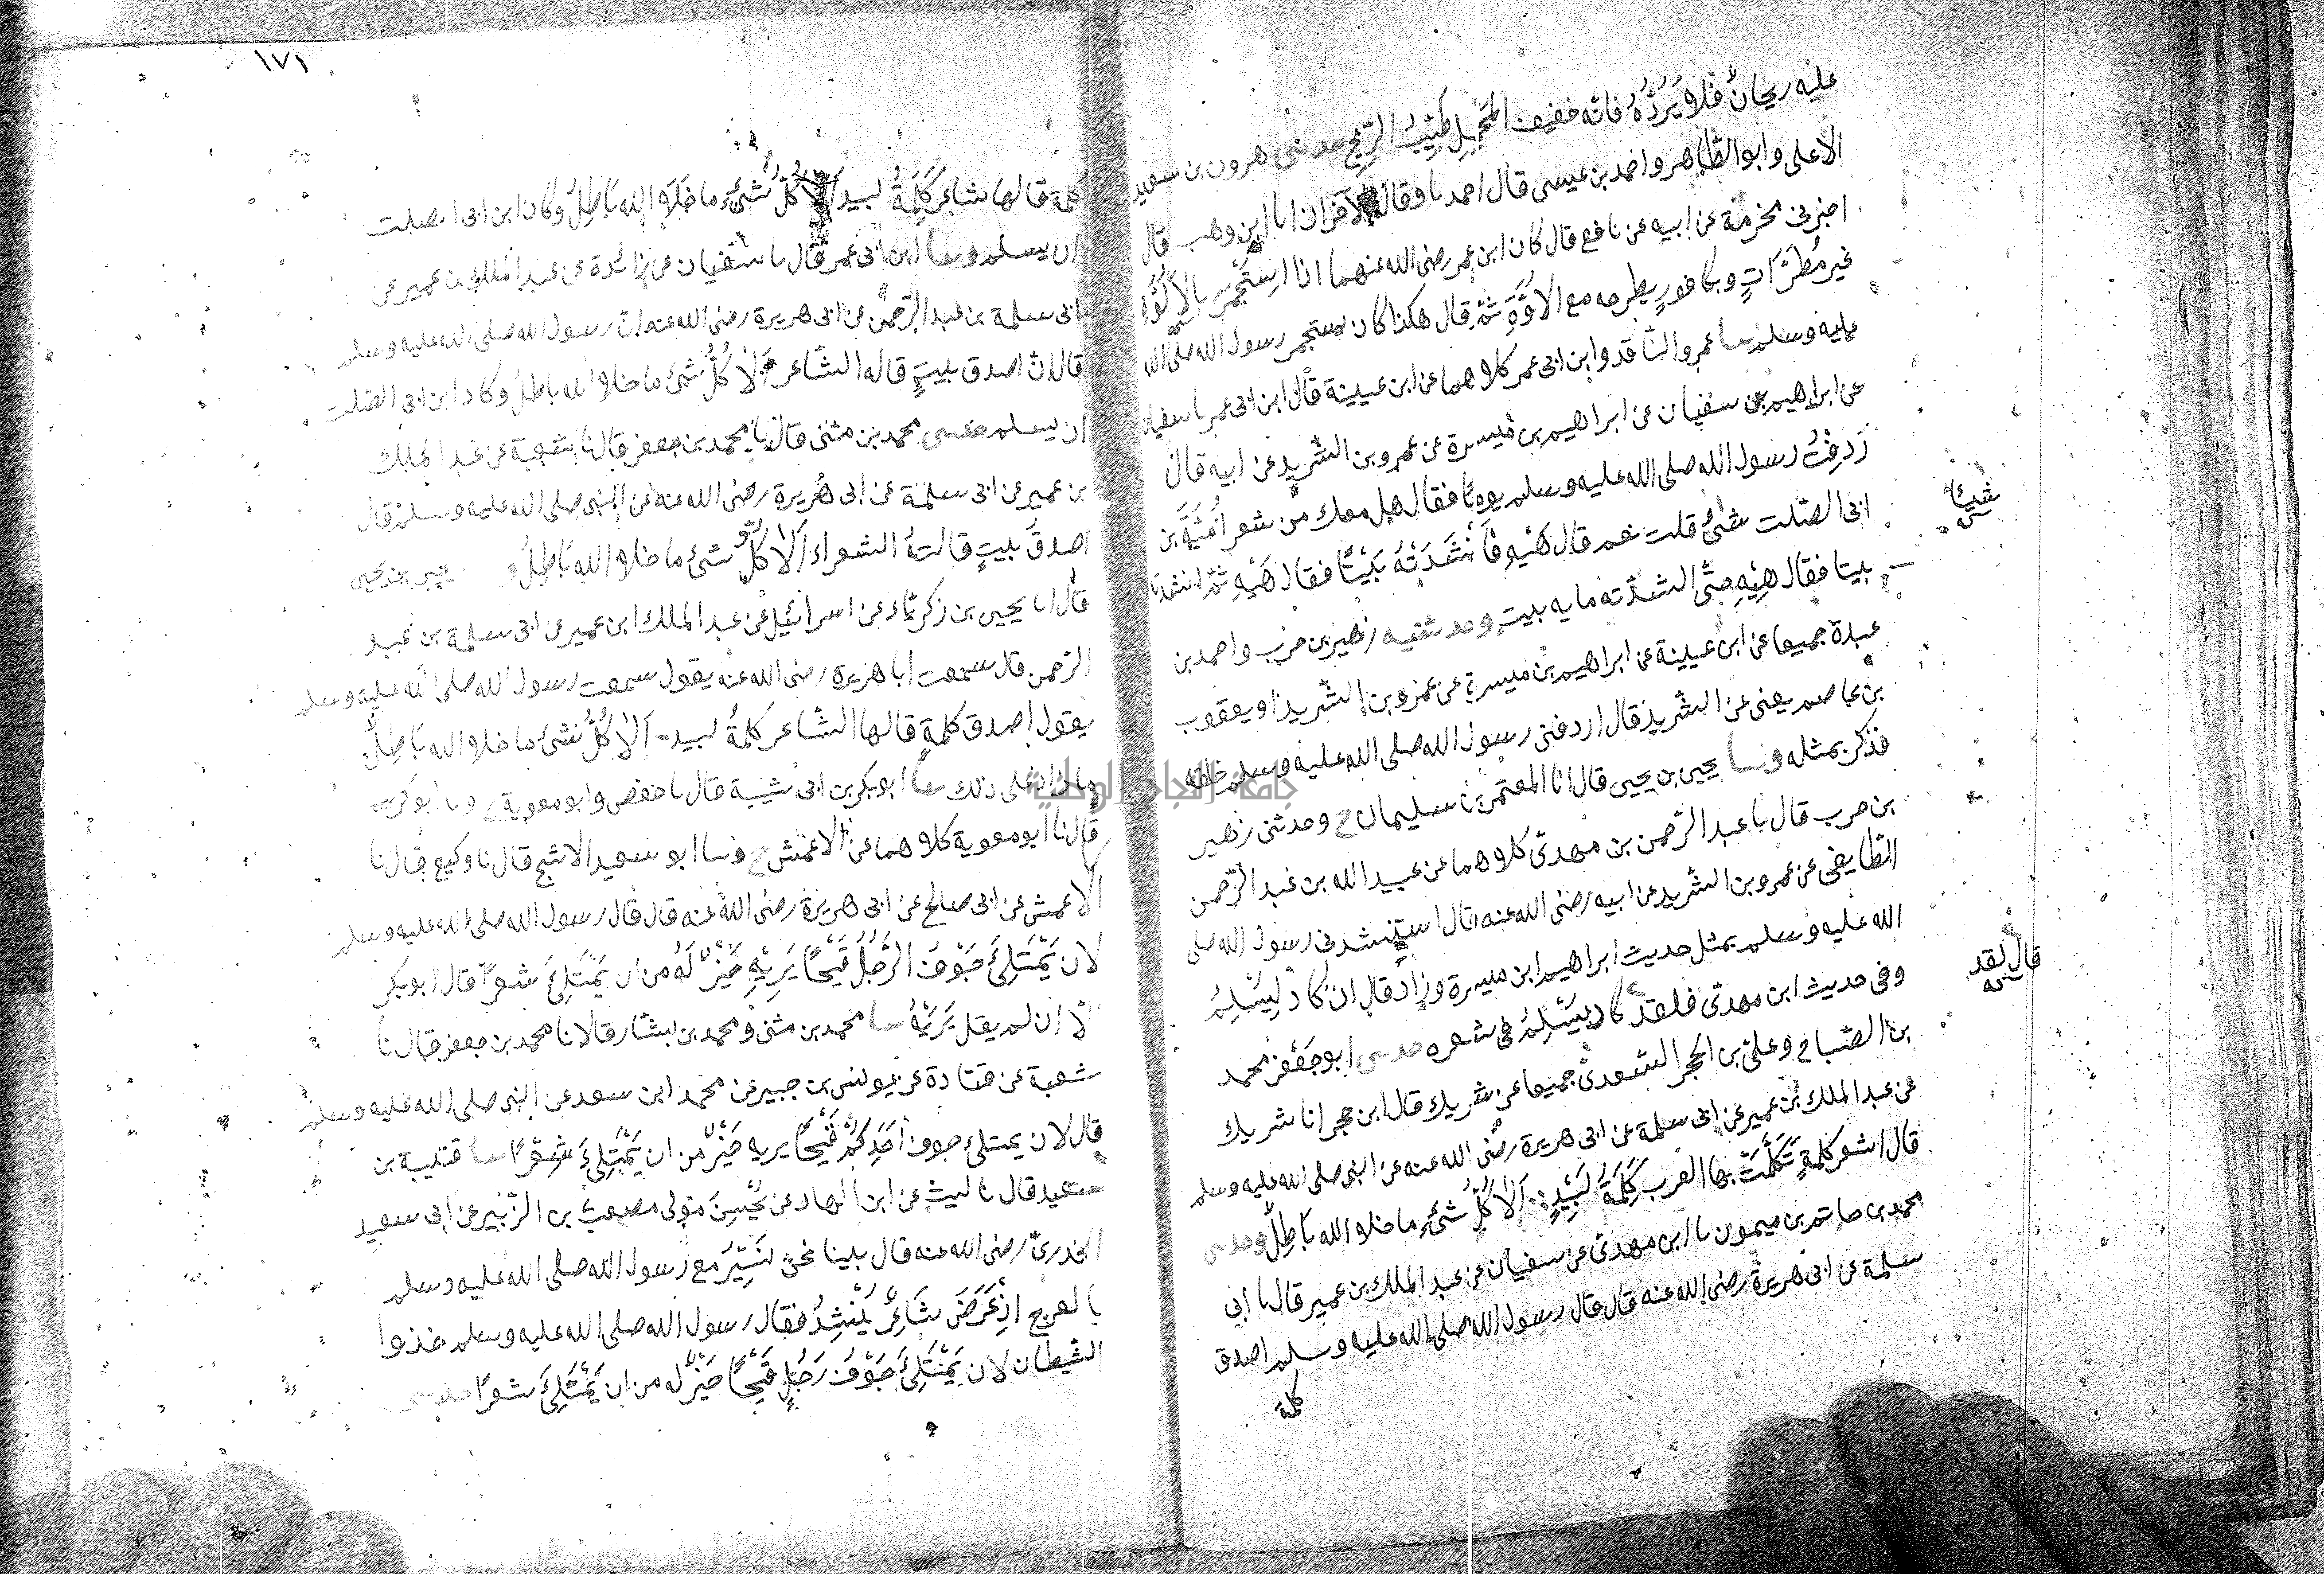 عليه ريحانٌ فلا يَرُدُّهُ فانه خفيف المَحْمِلِ طَيِّبُ الرِّيحِ حدثنى هرون بن سعيد
الاعلى وابو الطاهر واحمد بن عيسى قال احمد نا وقال الآخران انا ابن وهب قال
اخبرنى مخرمة عن ابيه عن نافع قال كان ابن عمر رضى الله عنهما اذا اسْتَجْمَرَ بالاَلُوَّةِ
غير مُطَرَّاتٍ وبكافورٍ يطرحه مع الاُوَّةِ ثم قال هكذا كان يستجمر رسول الله صلى الله
عليه وسلم حدثنا عمرو الناقد وابن ابى عمر كلاهما عن ابن عيينة قال ابن ابى عمر نا سفيان
عن ابراهيم بن سفيان عن ابراهيم بن ميسرة عن عمرو بن الشريد عن ابيه قال
رَدِفْتُ رسول الله صلى الله عليه وسلم يومًا فقال هل معك من شعر اُمَيَّةَ بن
ابى الصلت شئ قلت نعم قال هِيْهِ فَاَنْشَدَتْهُ بَيْتًا فقال هِيْهِ ثم انشدته
بيتا فقال هِيْهِ حتى انشدته مايه بيت وحدثنيه زهير بن حرب واحمد بن
عبدة جميعا عن ابن عيينة عن ابراهيم بن ميسرة عن عمرو بن الشريد او يعقوب
بن عاصم يعنى عن الشريد قال اردفنى رسول الله صلى الله عليه وسلم خلفه
فذكر بمثله وحدثنا يحيى بن يحيى قال انا المعتمر بن سليمان ح وحدثنى زهير
بن حرب قال نا عبد الرحمن بن مهدى كلاهما عن عبيد الله بن عبد الرحمن
الطايفى عن عمرو بن الشريد عن ابيه رضى الله عنه قال استنشدنى رسول الله صلى
الله عليه وسلم بمثل حديث ابراهيم ابن ميسرة وزاد قال ان كاد لِيُسْلِمُ
وفى حديث ابن مهدى فلقد كاد يُسْلِمُ فى شعره حدثنى ابو جَعْفَر محمد
بن الصباح وعلى بن الحجر السعدى جميعا عن شريك قال ابن حجر انا شريك
عن عبد الملك بن عمير عن ابى سلمة عن ابى هريرة رضى الله عنه عن النبى صلى الله عليه وسلم
قال اشعر كلمةٍ تَكَلَّمَتْ بها العرب كَلِمَةُ لَبِيْدٍ اَلَا كُلُّ شَىْءٍ ما خلا الله بَاطِلٌ وحدثنى
محمد بن حاتم بن ميمون نا ابن مهدى عن سفيان عن عبد الملك بن عمير قال نا ابى
سلمة عن ابى هريرة رضى الله عنه قال قال رسول الله صلى الله عليه وسلم اصدق
كلمة
شيئًا
قال لقد
١٧١
كلمة قالها شاعر كَلِمَةُ لبيد اَلَا كُلُّ شَىْءٍ ما خَلَا الله بَاطِلٌ وكان ابن ابى الصلت
ان يسلم وحدثنا ابن ابى عمر قال نا سفيان عن زائدة عن عبد الملك بن عمير عن
ابى سلمة بن عبد الرحمن عن ابى هريرة رضى الله عنه ان رسول الله صلى الله عليه وسلم
قال ان اصدق بيتٍ قاله الشاعر اَلَا كُلُّ شئ ما خلا الله باطلٌ وكاد ابن ابى الصلت
ان يسلم حدثنى محمد بن مثنى قال نا محمد بن جعفر قال نا شعبة عن عبد الملك
بن عمير عن ابى سلمة عن ابى هريرة رضى الله عنه عن النبى صلى الله عليه وسلم قال
اصدق بيتٍ قالتهُ الشعراء اَلَا كُلُّ شئ ما خلا الله بَاطِلٌ يحيى بن يحيى
قال انا يحيى بن زكرياء عن اسرائيل عن عبد الملك ابن عمير عن ابى سلمة بن عبد
الرحمن قال سمعت ابا هريرة رضى الله عنه يقول سمعت رسول الله صلى الله عليه وسلم
يقول اصدق كلمةٍ قالها الشاعر كلمةُ لبيد اَلَا كُلُّ شئ ما خلا الله بَاطِلٌ
ما زاد على ذلك حدثنا ابو بكر بن ابى شيبة قال نا حفص وابو معوية ح ونا ابو كريب
قال نا ابو معوية كلاهما عن الاعمش ح ونا ابو سعيد الاشج قال نا وكيع قال نا
الاعمش عن ابى صالح عن ابى هريرة رضى الله عنه قال قال رسول الله صلى الله عليه وسلم
لان يَمْتَلِئَ جَوْفُ الرَّجُلِ قَيْحًا يَرِيْهِ خَيْرٌ لَهُ من ان يَمْتَلِئَ شعرًا قال ابو بكر
الا ان لم يقل يَرِيْهُ حدثنا محمد بن مثنى ومحمد بن بشار قالا نا محمد بن جعفر قال نا
شعبة عن قتادة عن يونس بن جبير عن محمد ابن سعد عن النبى صلى الله عليه وسلم
قال لان يمتلئ جوف اَحَدِكُمْ قَيْحًا يريه خَيْرٌ من ان يَمْتَلِئَ شِعْرًا حدثنا قتيبة بن
سعيد قال نا ليث عن ابن الهاد عن يُحَنِّسَ مولى مصعب بن الزبير عن ابى سعيد
الخدرى رضى الله عنه قال بينا نحن نَسِيْرُ مع رسول الله صلى الله عليه وسلم
بالعرج اذ عَرَضَ شَاعِرٌ يُنْشِدُ فقال رسول الله صلى الله عليه وسلم خذوا
الشيطان لان يَمْتَلِئَ جَوْفُ رَجُلٍ قَيْحًا خَيْرٌ له من ان يَمْتَلِئَ شعرًا حدثنى
جامعة النجاح الوطنية